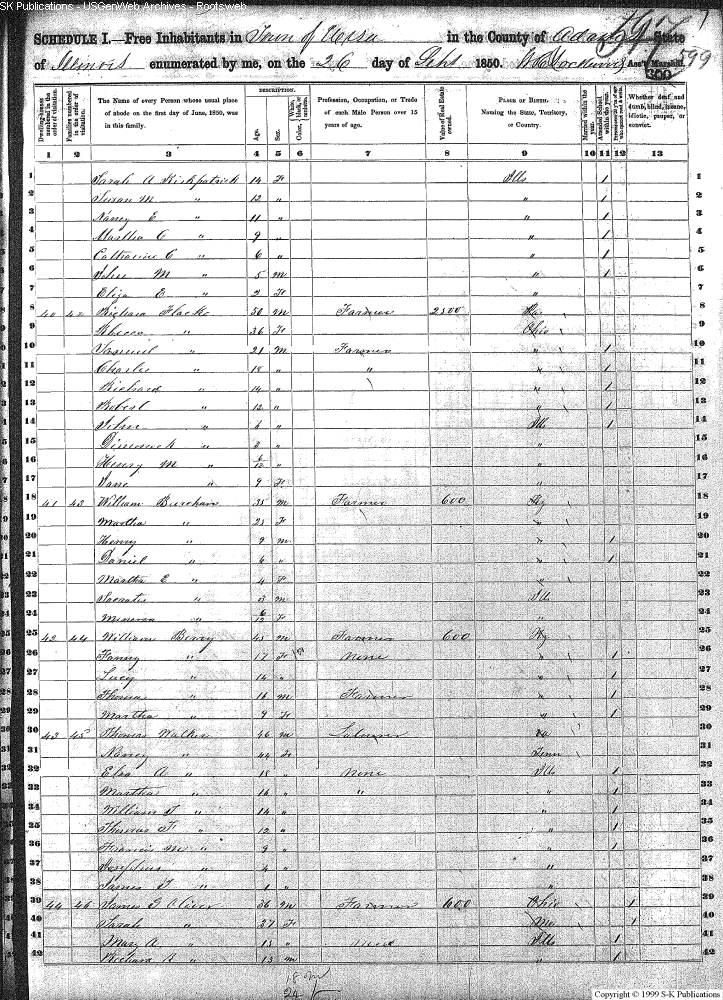 SK Publications - USGenWeb Archives - Rootsweb
SCHEDULE I.—Free Inhabitants in Town of Ursa in the County of Adams State
of Illinois enumerated by me, on the 26 day of Sept 1850. Ass't Marshal.
599
300
DESCRIPTION.
Dwelling-houses numbered in the order of visitation.
Families numbered in the order of visitation.
The Name of every Person whose usual place of abode on the first day of June, 1850, was in this family.
Age.
Sex.
Color, White, black, or mulatto.
Profession, Occupation, or Trade of each Male Person over 15 years of age.
Value of Real Estate owned.
PLACE OF BIRTH. Naming the State, Territory, or Country.
Married within the year.
Attended School within the year.
Persons over 20 y'rs of age who cannot read & write.
Whether deaf and dumb, blind, insane, idiotic, pauper, or convict.
1 2 3 4 5 6 7 8 9 10 11 12 13
1 Sarah A Kirkpatrick 14 F Ills 1 1
2 Susan M " 12 " " 1 2
3 Nancy E " 11 " " 1 3
4 Martha C " 9 " " 1 4
5 Catharine C " 6 " " 1 5
6 John M " 5 M " 1 6
7 Eliza E " 2 F " 7
8 40 42 Richard 50 M Farmer 2500 Ky 8
9 Rebecca " 36 F Ohio 9
10 Samuel " 21 M Farmer " 1 10
11 Charles " 18 " " " 1 11
12 Richard " 14 " " 1 12
13 Robert " 12 " " 1 13
14 John " 6 " Ills 1 14
15 " 3 " " 15
16 Henry M " 6/12 " " 16
17 Jane " 9 F " 17
18 41 43 William Burcham 35 M Farmer 600 Ky 18
19 Martha " 25 F " 19
20 Henry " 9 M " 1 20
21 Daniel " 6 " " 1 21
22 Martha E " 4 F " 22
23 Socrates " 3 M Ills 23
24 Minerva " 6/12 F " 24
25 42 44 William Berry 45 M Farmer 600 Ky 25
26 Fanny " 17 F None " 1 26
27 Lucy " 14 " " 1 27
28 Thomas " 16 M Farmer " 1 28
29 Martha " 9 F " 1 29
30 43 45 Thomas Walker 46 M Va 30
31 Nancy " 44 F Tenn 31
32 A " 18 " None Ills 1 32
33 Martha " 16 " " " 1 33
34 William " 14 " " 1 34
35 Thomas F " 12 " " 1 35
36 Francis M " 9 " " 1 36
37 Josephus " 4 " " 37
38 James F " 1 " " 38
39 44 46 James Oliver 36 M Farmer 600 Ohio 1 39
40 Sarah " 37 F Mo 1 40
41 Mary A " 15 " None Ills 1 41
42 Richard R " 13 M " 1 42
18 M
24 F
Copyright © 1999 S-K Publications